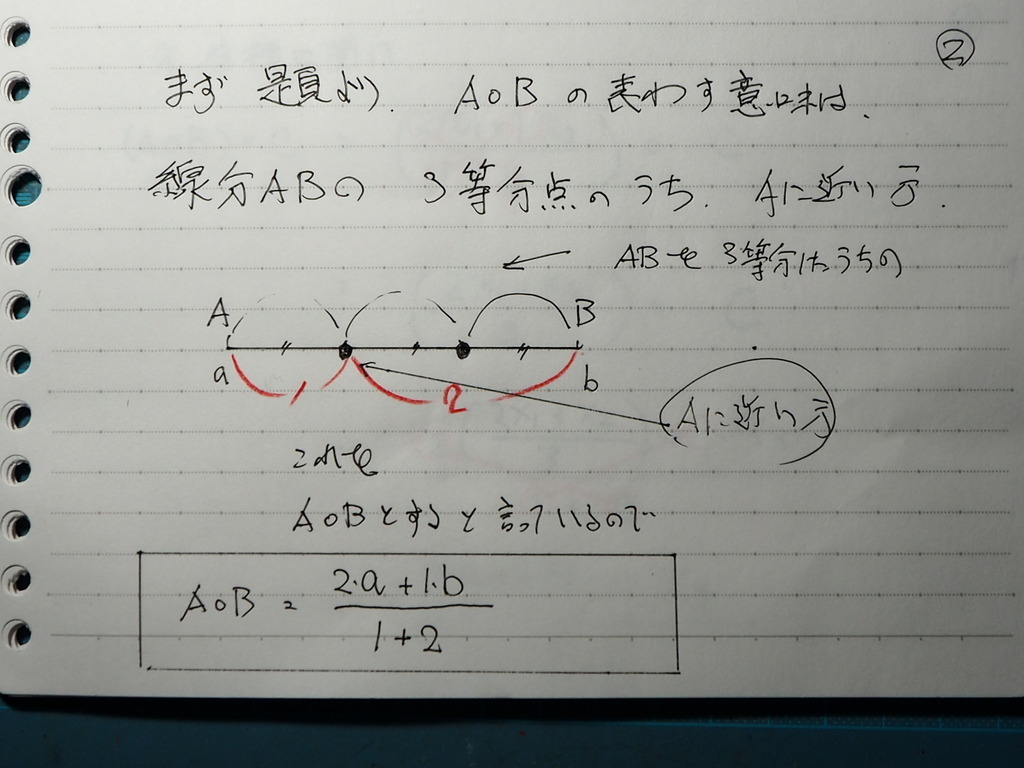 ②
まず 題意より. A∘Bの表わす意味は,
線分ABの 3等分点のうち. Aに近い方.
← ABを3等分したうちの
A B
a 1 2 b
Aに近い方
これを
A∘Bとすると言っているので
A∘B = \frac{2·a+1·b}{1+2}